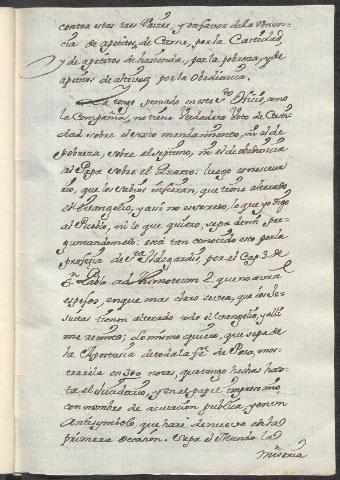 contra estas tres Raizes, y en favor de la Renun-
cia de apetitos, de Carne, por la Castidad,
y de apetitos de hazienda, por la pobreza, y de
apetitos de altivez por la Obediencia.
Ya tengo provado en este Oficio, como
la Compañia, no tiene verdadero Voto de Casti-
dad sobre el sexto mandamiento, ni el de
pobreza, sobre el septimo, ni el de obediencia
al Papa sobre el Quarto: luego es necesa-
rio, que los sabios infieran, que tiene alterado
el Evangelio, y asi no es secreto, lo que yo digo
al Pueblo, ni lo que quiero, sepa de mi pre-
guntandomelo: està tan conocido esto por la
profecia de Sta Ildegardis, por el Cap. 3. de
Sn. Pablo ad Thimoteum 2. que no avrà
espejos, en que mas claro se vea, que los Jesu-
suitas tienen alterado todo el Evangelio, y alli
me remito; Lo mismo quiero, que sepa de
la Apostasia de toda la feè de Poza, mos-
trarela en 300 notas, que tengo hechas has-
ta el dia, y en el papel impreso mio
con nombre de acusacion publica, y en un
Antisymbolo, que harè de nuevo en la
primera ocasion. Sepa el Mundo la
miseria